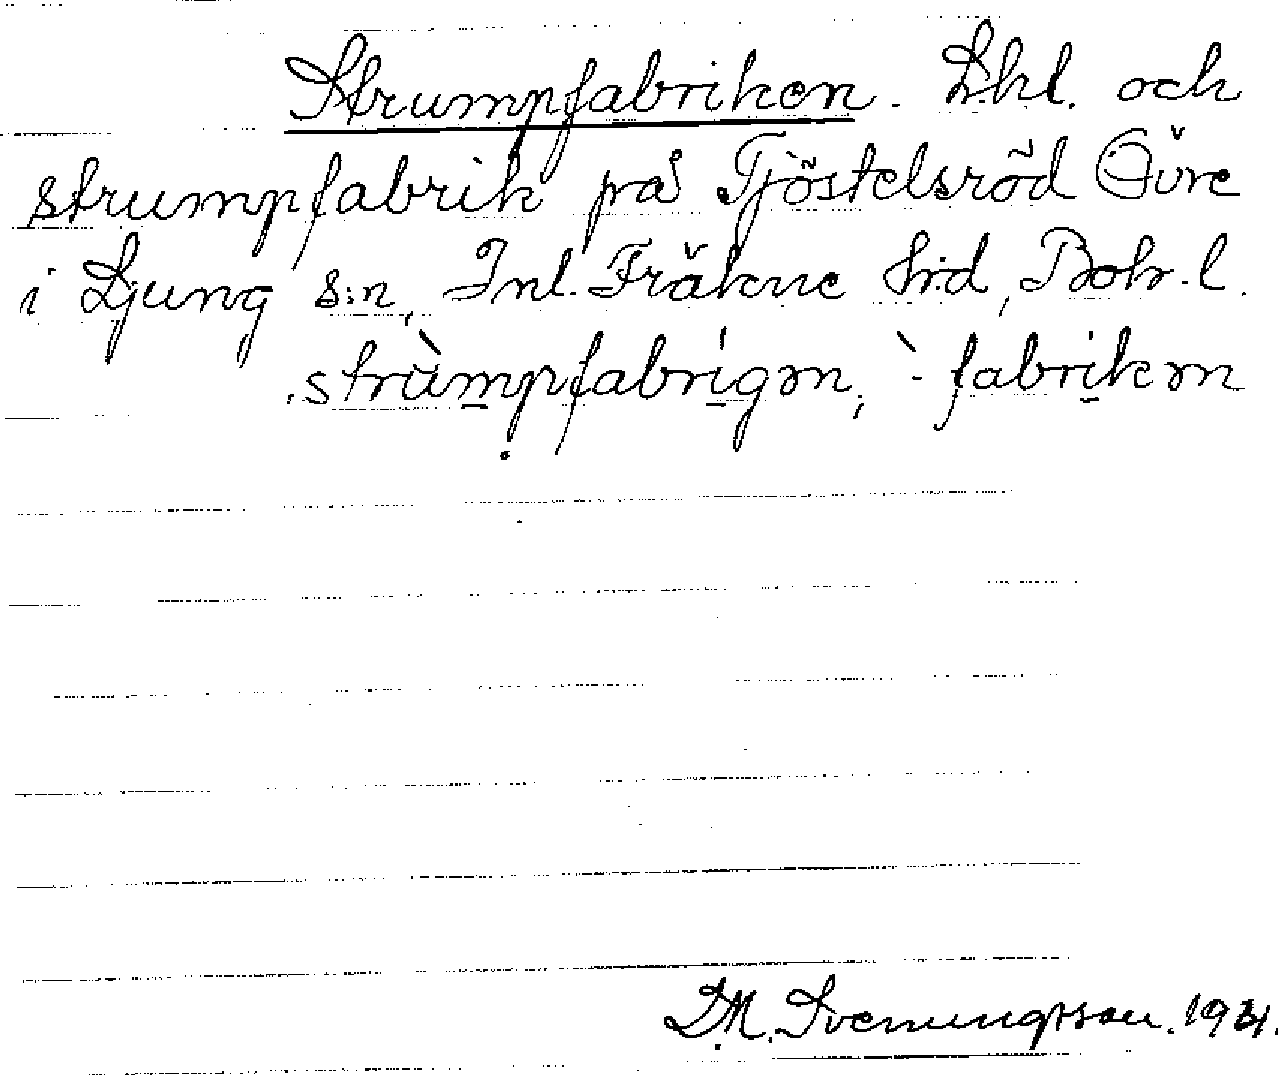 Strumpfabriken. Lhl. och
strumpfabrik på Tjöstelsröd Övre
i Ljung s:n, Inl. Fräkne hd, Boh. l.
strùmpfabrígən, `- fabrikən
D.M. Svenungsson.